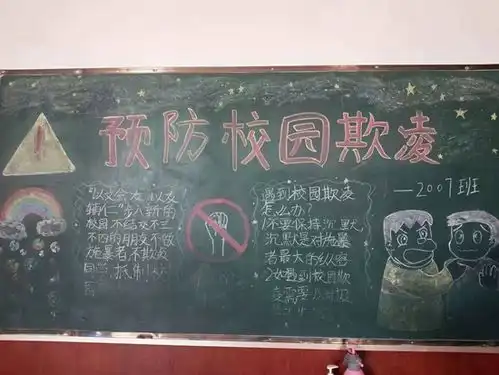 预防校园欺凌
——2007班
"以文会友,以友
辅仁"步入新的
校园不结交不三
不四的朋友不做
施暴者不欺凌
同 抵制
遇到校园欺凌
怎么办?
1.不要保持沉默
沉默是对施暴
者最大的纵容
2.如遇到校园欺